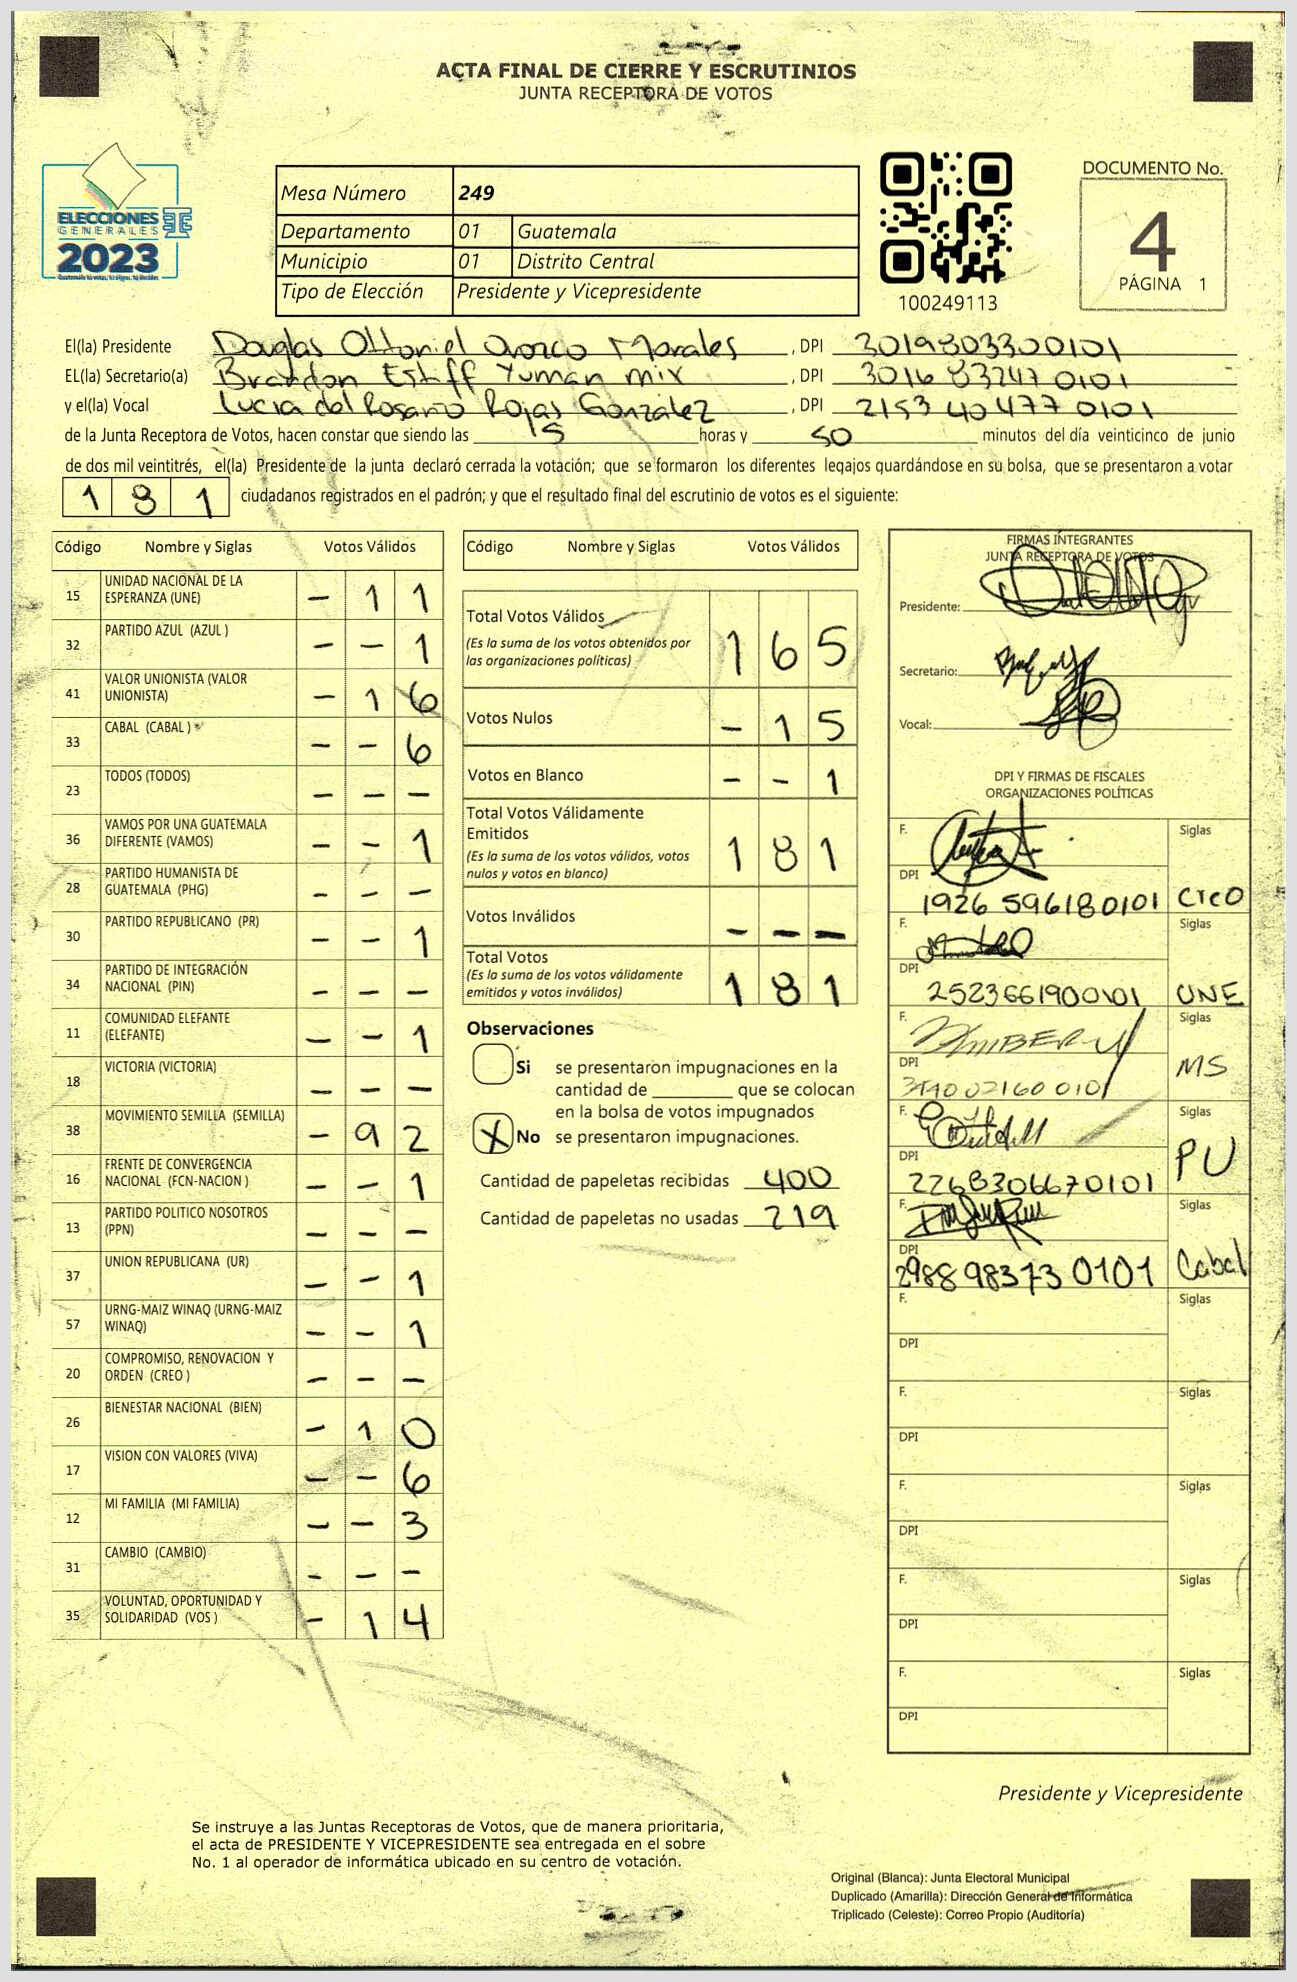 ACTA FINAL DE CIERRE Y ESCRUTINIOS
JUNTA RECEPTORA DE VOTOS
ELECCIONES
GENERALES
2023
Mesa Número 249
Departamento 01 Guatemala
Municipio 01 Distrito Central
Tipo de Elección Presidente y Vicepresidente
100249113
DOCUMENTO No.
4
PÁGINA 1
El(la) Presidente Douglas Ottoniel Orozco Morales , DPI 3019803300101
EL(la) Secretario(a) Brandon Estiff Yuman Mix , DPI 3016 83247 0101
y el(la) Vocal Lucia del Rosario Rojas González , DPI 2153 40 477 0101
de la Junta Receptora de Votos, hacen constar que siendo las 15 horas y 50 minutos del día veinticinco de junio
de dos mil veintitrés, el(la) Presidente de la junta declaró cerrada la votación; que se formaron los diferentes legajos guardándose en su bolsa, que se presentaron a votar
181 ciudadanos registrados en el padrón; y que el resultado final del escrutinio de votos es el siguiente:
Código Nombre y Siglas Votos Válidos
15 UNIDAD NACIONAL DE LA ESPERANZA (UNE) - 1 1
32 PARTIDO AZUL (AZUL ) - - 1
41 VALOR UNIONISTA (VALOR UNIONISTA) - 1 6
33 CABAL (CABAL ) - - 6
23 TODOS (TODOS) - - -
36 VAMOS POR UNA GUATEMALA DIFERENTE (VAMOS) - - 1
28 PARTIDO HUMANISTA DE GUATEMALA (PHG) - - -
30 PARTIDO REPUBLICANO (PR) - - 1
34 PARTIDO DE INTEGRACIÓN NACIONAL (PIN) - - -
11 COMUNIDAD ELEFANTE (ELEFANTE) - - 1
18 VICTORIA (VICTORIA) - - -
38 MOVIMIENTO SEMILLA (SEMILLA) - 9 2
16 FRENTE DE CONVERGENCIA NACIONAL (FCN-NACION ) - - 1
13 PARTIDO POLITICO NOSOTROS (PPN) - - -
37 UNION REPUBLICANA (UR) - - 1
57 URNG-MAIZ WINAQ (URNG-MAIZ WINAQ) - - 1
20 COMPROMISO, RENOVACION Y ORDEN (CREO ) - - -
26 BIENESTAR NACIONAL (BIEN) - 1 0
17 VISION CON VALORES (VIVA) - - 6
12 MI FAMILIA (MI FAMILIA) - - 3
31 CAMBIO (CAMBIO) - - -
35 VOLUNTAD, OPORTUNIDAD Y SOLIDARIDAD (VOS ) - 1 4
Código Nombre y Siglas Votos Válidos
Total Votos Válidos 1 6 5
(Es la suma de los votos obtenidos por
las organizaciones políticas)
Votos Nulos - 1 5
Votos en Blanco - - 1
Total Votos Válidamente
Emitidos 1 8 1
(Es la suma de los votos válidos, votos
nulos y votos en blanco)
Votos Inválidos - - -
Total Votos 1 8 1
(Es la suma de los votos válidamente
emitidos y votos inválidos)
Observaciones
Si se presentaron impugnaciones en la
cantidad de ________ que se colocan
en la bolsa de votos impugnados
X No se presentaron impugnaciones.
Cantidad de papeletas recibidas 400
Cantidad de papeletas no usadas 219
FIRMAS INTEGRANTES
JUNTA RECEPTORA DE VOTOS
Presidente:
Secretario:
Vocal:
DPI Y FIRMAS DE FISCALES
ORGANIZACIONES POLÍTICAS
F. Siglas
DPI 1926 596180101 Creo
F. Siglas
DPI 2523661900101 UNE
F. Siglas
DPI MS
F. Siglas
DPI 2268306670101 PU
F. Siglas
DPI 298898373 0101 Cabal
F. Siglas
DPI
F. Siglas
DPI
F. Siglas
DPI
F. Siglas
DPI
F. Siglas
DPI
Presidente y Vicepresidente
Se instruye a las Juntas Receptoras de Votos, que de manera prioritaria,
el acta de PRESIDENTE Y VICEPRESIDENTE sea entregada en el sobre
No. 1 al operador de informática ubicado en su centro de votación.
Original (Blanca): Junta Electoral Municipal
Duplicado (Amarilla): Dirección General de Informática
Triplicado (Celeste): Correo Propio (Auditoría)